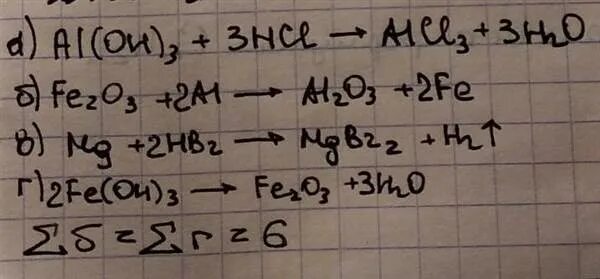 а) Al(OH)₃ + 3HCl → AlCl₃ + 3H₂O
б) Fe₂O₃ + 2Al → Al₂O₃ + 2Fe
в) Mg + 2HBr → MgBr₂ + H₂↑
г) 2Fe(OH)₃ → Fe₂O₃ + 3H₂O
Σб = Σг = 6